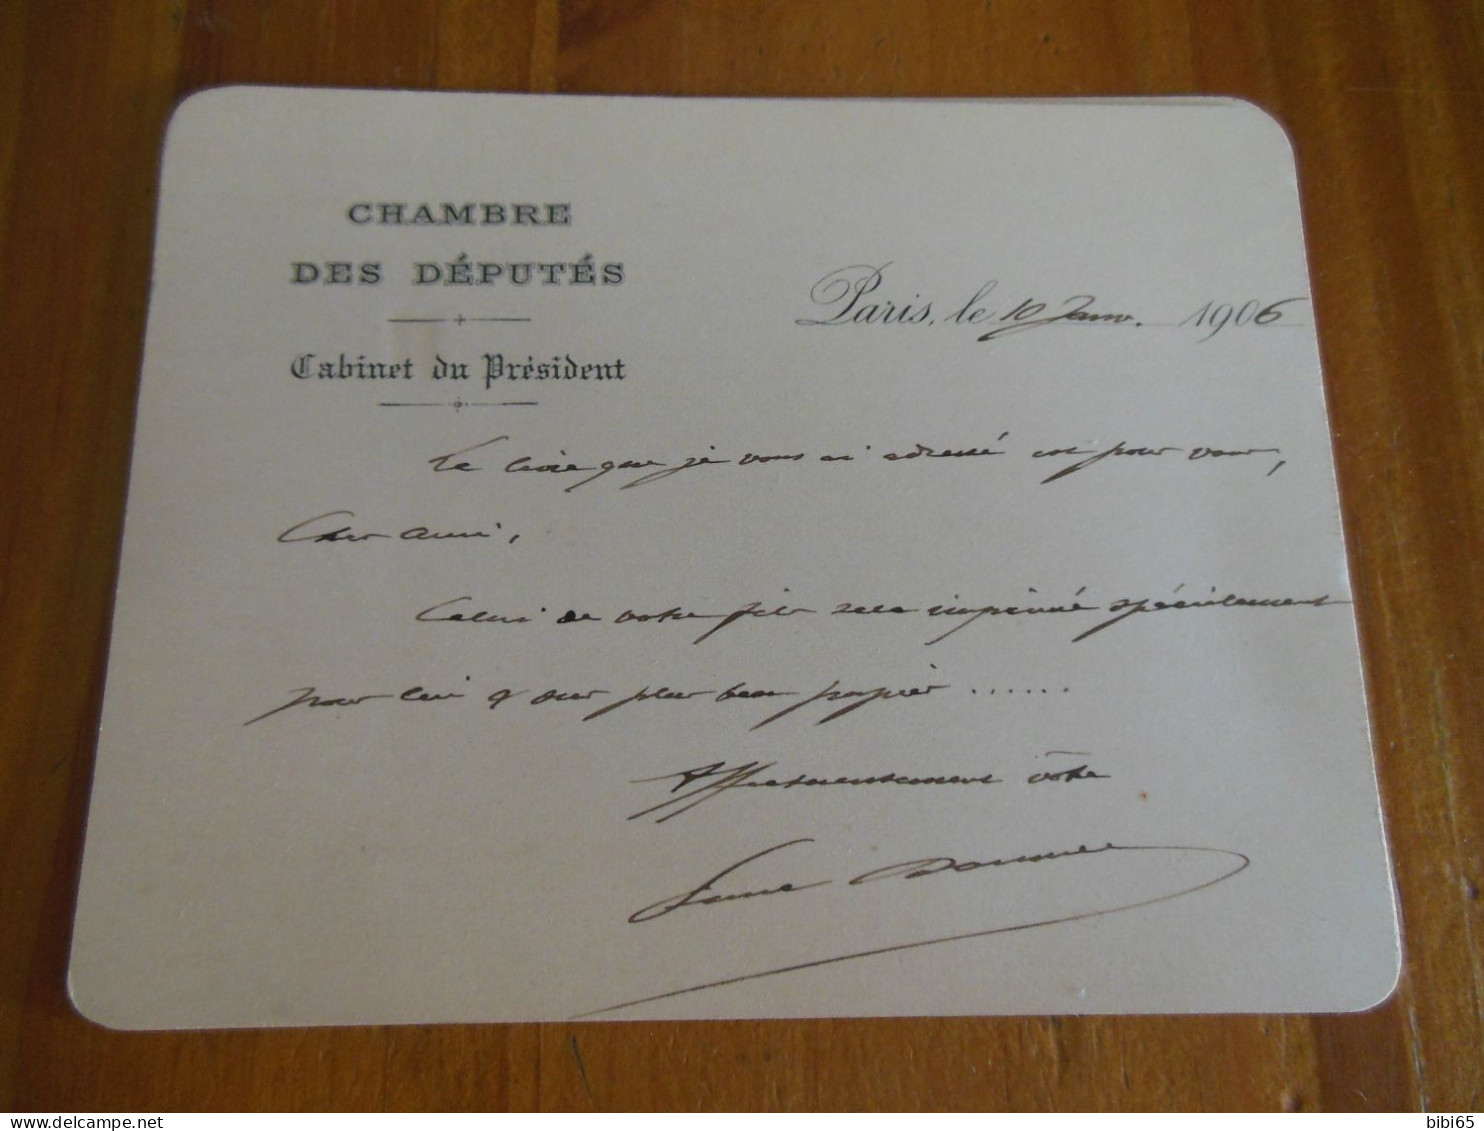 CHAMBRE
DES DÉPUTÉS
Cabinet du Président
Paris, le 10 Janv. 1906
Le livre que je vous ai adressé est pour vous,
Cher ami,
Celui de votre fils sera imprimé spécialement
pour lui & sur plus beau papier ......
Affectueusement vôtre
Paul Doumer
bibi65